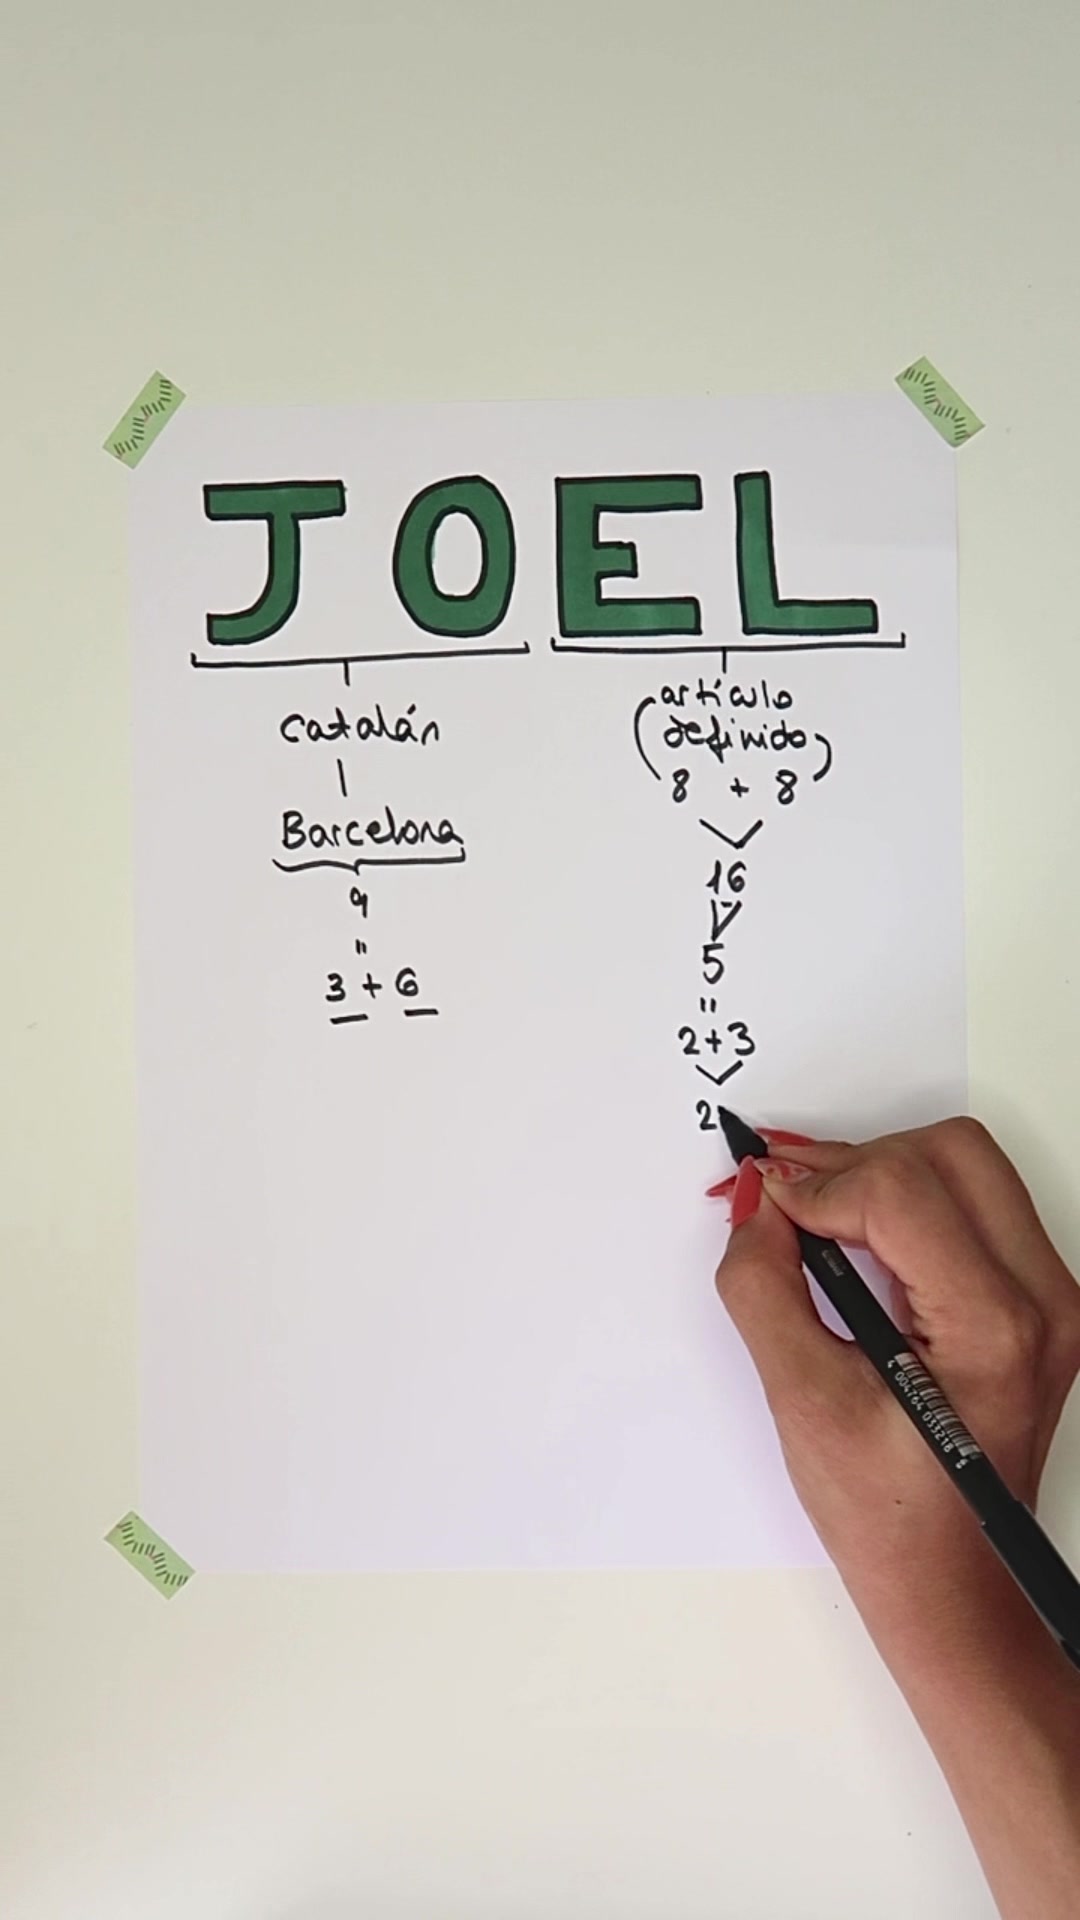 JOEL
catalán
Barcelona
9
"
3 + 6
(artículo
definido)
8 + 8
16
5
"
2+3
2
4 004764 033218